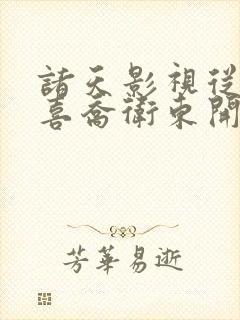 諸天影視從
喜喬衛東開
芳華易逝